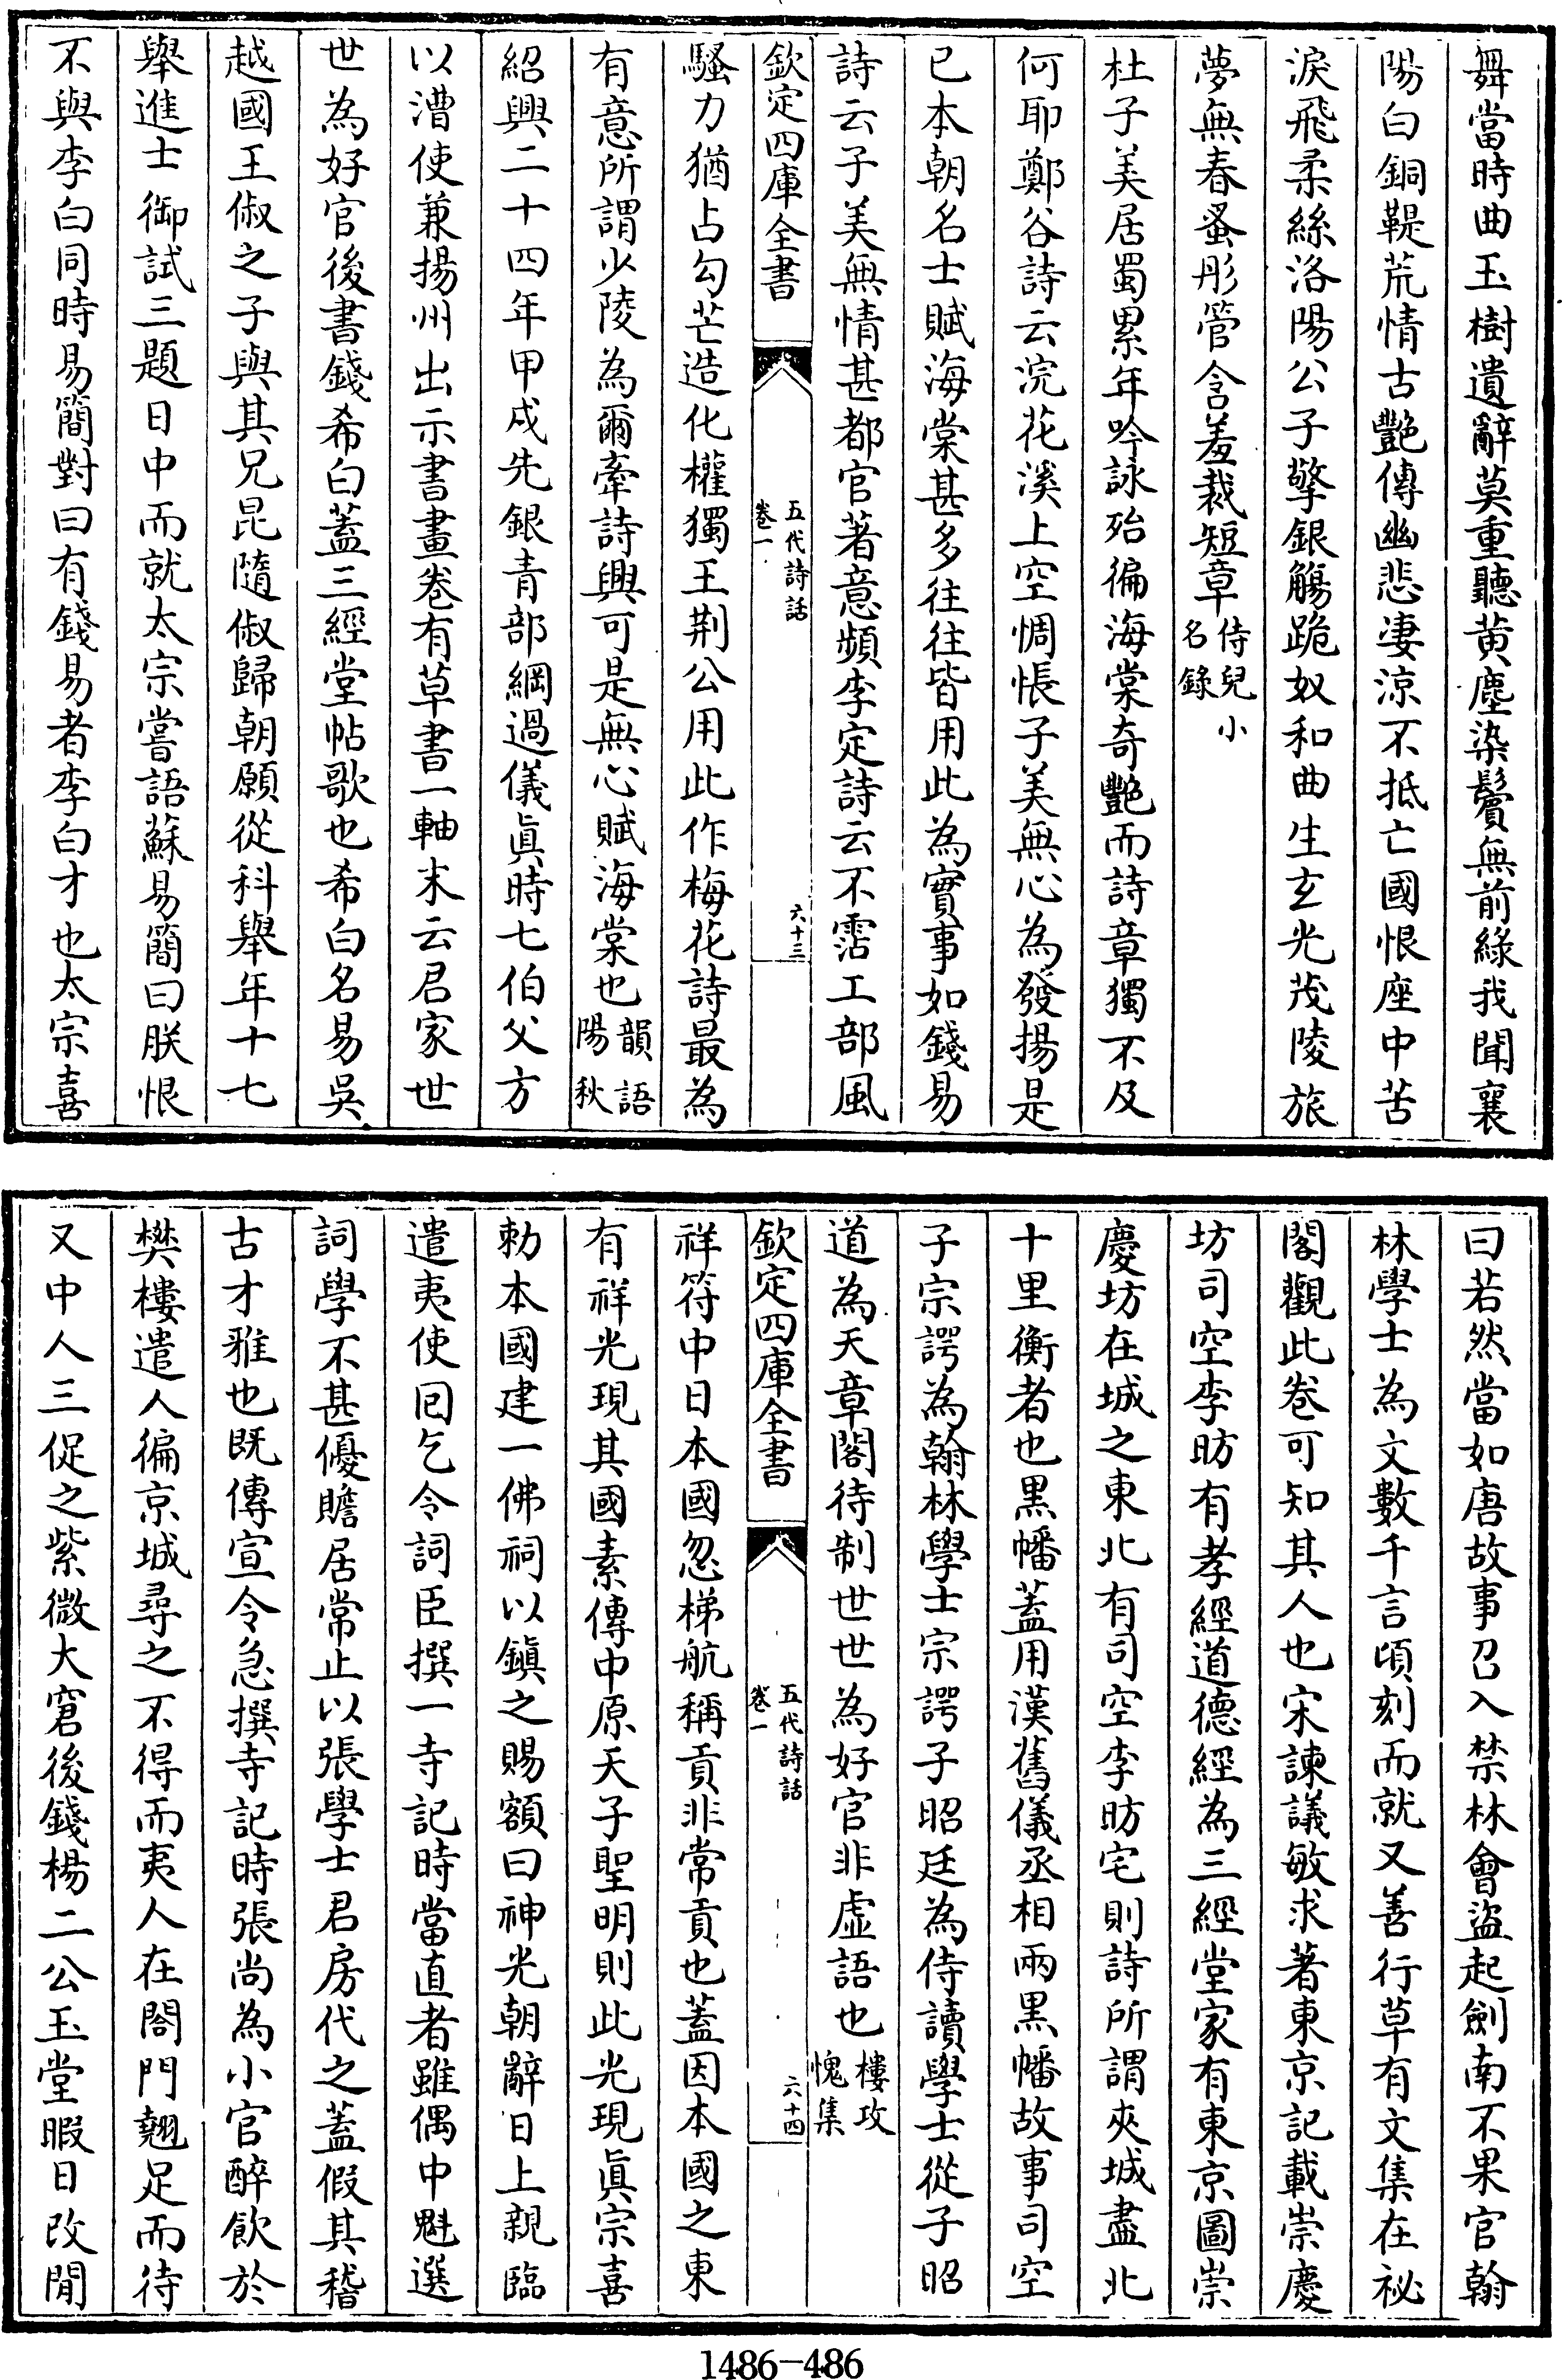 舞當時曲玉樹遺辭莫重聽黄塵染鬢無前緑我聞襄
陽白銅鞮荒情古艷傳幽悲凄涼不抵亡國恨座中苦
淚飛柔絲洛陽公子擎銀觴跪奴和曲生玄光茂陵旅
夢無春蚤彤管含羞裁短章侍兒小名錄
杜子美居蜀累年吟詠殆徧海棠奇艷而詩章獨不及
何耶鄭谷詩云浣花溪上空惆悵子美無心為發揚是
已本朝名士賦海棠甚多往往皆用此為實事如錢易
詩云子美無情甚都官著意頻李定詩云不霑工部風
欽定四庫全書 五代詩話 卷一 六十三
騷力猶占勾芒造化權獨王荆公用此作梅花詩最為
有意所謂少陵為爾牽詩興可是無心賦海棠也韻語陽秋
紹興二十四年甲戌先銀青部綱過儀眞時七伯父方
以漕使兼揚州出示書畫卷有草書一軸末云君家世
世為好官後書錢希白蓋三經堂帖歌也希白名易吳
越國王俶之子與其兄昆隨俶歸朝願從科舉年十七
舉進士御試三題日中而就太宗嘗語蘇易簡曰朕恨
不與李白同時易簡對曰有錢易者李白才也太宗喜
曰若然當如唐故事召入禁林會盜起劍南不果官翰
林學士為文數千言頃刻而就又善行草有文集在祕
閣觀此卷可知其人也宋諫議敏求著東京記載崇慶
坊司空李昉有孝經道德經為三經堂家有東京圖崇
慶坊在城之東北有司空李昉宅則詩所謂夾城盡北
十里衡者也黑幡蓋用漢舊儀丞相兩黑幡故事司空
子宗諤為翰林學士宗諤子昭廷為侍讀學士從子昭
道為天章閣待制世世為好官非虛語也樓攻愧集
欽定四庫全書 五代詩話 卷一 六十四
祥符中日本國忽梯航稱貢非常貢也蓋因本國之東
有祥光現其國素傳中原天子聖明則此光現眞宗喜
勅本國建一佛祠以鎮之賜額曰神光朝辭日上親臨
遣夷使囘乞令詞臣撰一寺記時當直者雖偶中魁選
詞學不甚優贍居常止以張學士君房代之蓋假其稽
古才雅也既傳宣令急撰寺記時張尚為小官醉飲於
樊樓遣人徧京城尋之不得而夷人在閤門翹足而待
又中人三促之紫微大窘後錢楊二公玉堂暇日改閒
1486-486